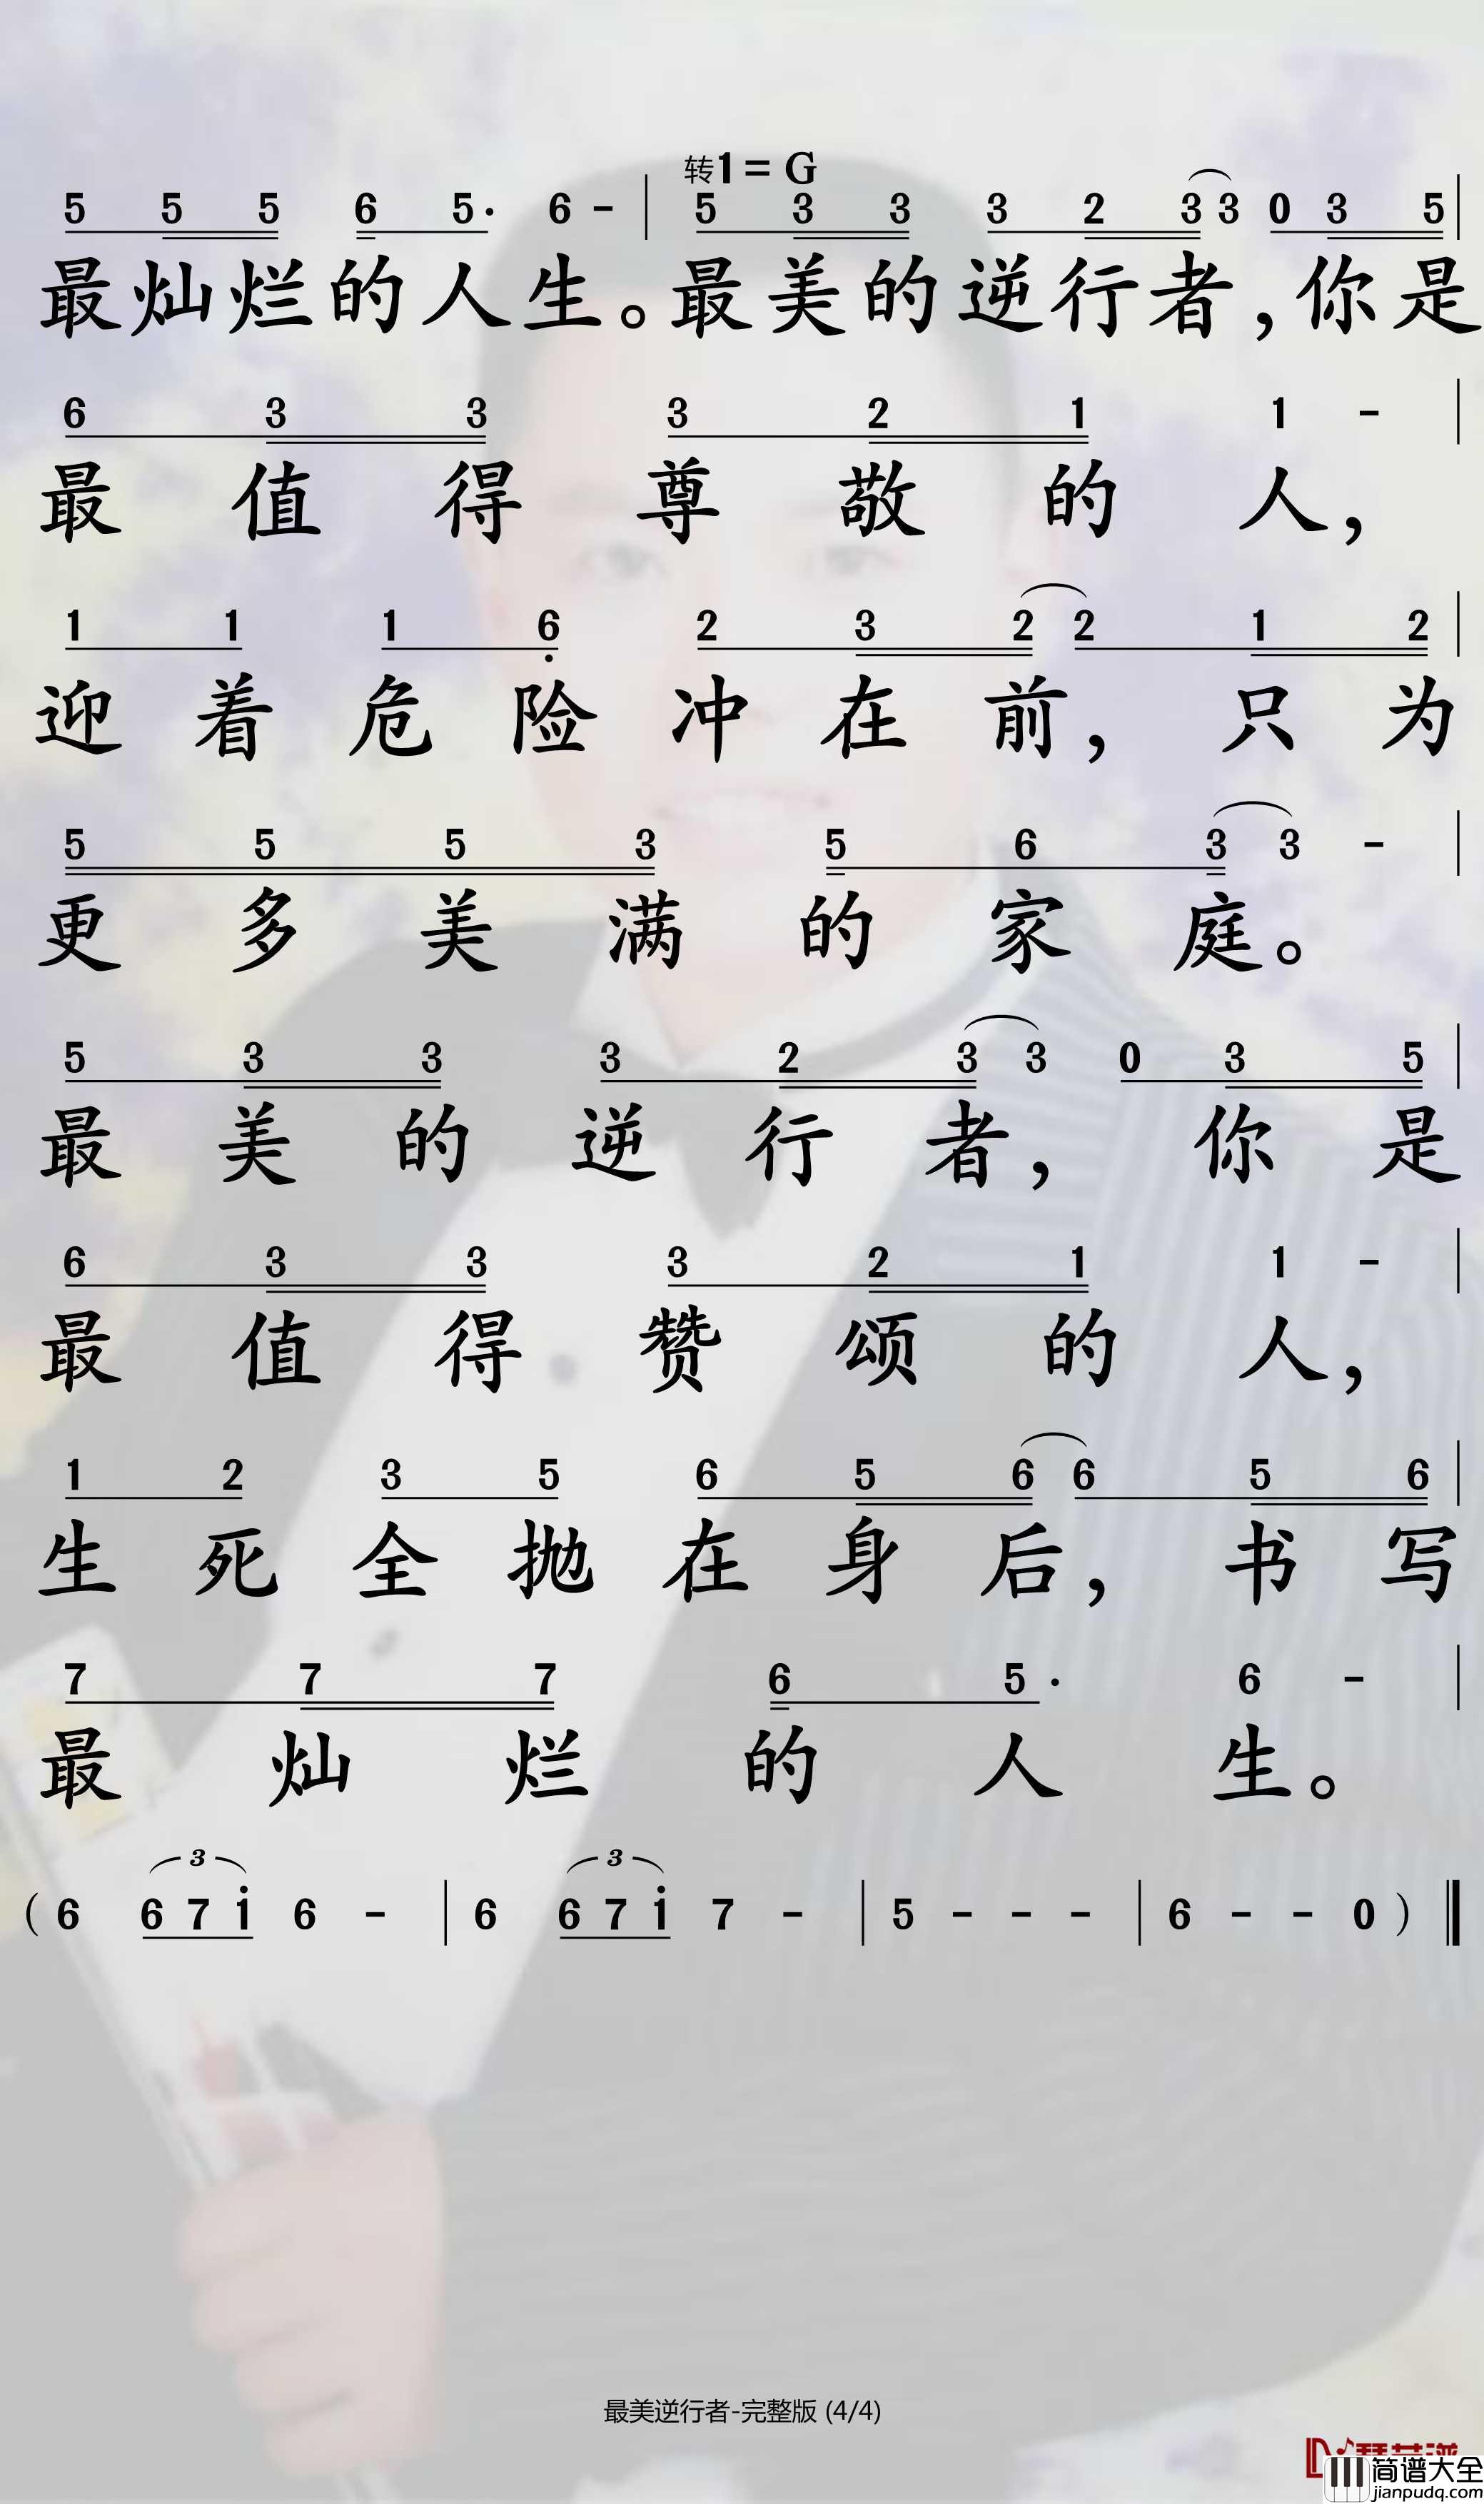 转1=G
5 5 5 6 5· 6 - | 5 3 3 3 2 3 3 0 3 5 |
最灿烂的人生。最美的逆行者,你是
6 3 3 3 2 1 1 - |
最值得尊敬的人,
1 1 1 6 2 3 2 2 1 2 |
迎着危险冲在前,只为
5 5 5 3 5 6 3 3 - |
更多美满的家庭。
5 3 3 3 2 3 3 0 3 5 |
最美的逆行者,你是
6 3 3 3 2 1 1 - |
最值得赞颂的人,
1 2 3 5 6 5 6 6 5 6 |
生死全抛在身后,书写
7 7 7 6 5· 6 - |
最灿烂的人生。
3 3
( 6 6 7 i 6 - | 6 6 7 i 7 - | 5 - - - | 6 - - 0 ) ‖
最美逆行者-完整版 (4/4)
简谱大全
jianpudq.com